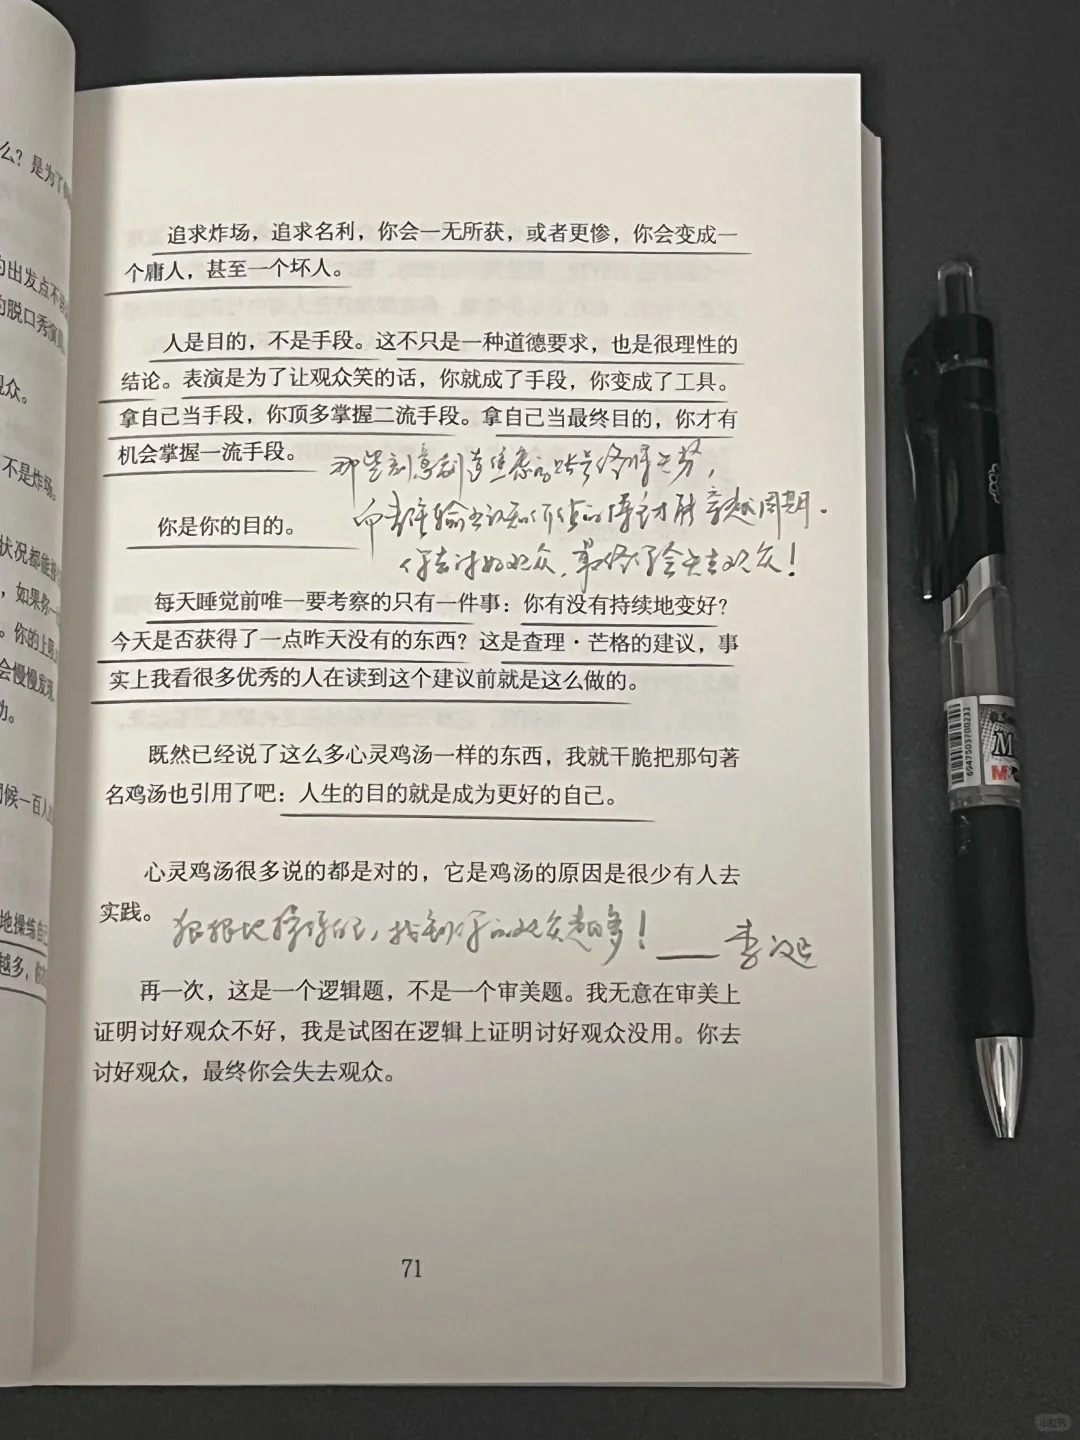 么？是为了
追求炸场，追求名利，你会一无所获，或者更惨，你会变成一
个庸人，甚至一个坏人。
出发点不
脱口秀演
观众。
人是目的，不是手段。这不只是一种道德要求，也是很理性的
结论。表演是为了让观众笑的话，你就成了手段，你变成了工具。
拿自己当手段，你顶多掌握二流手段。拿自己当最终目的，你才有
机会掌握一流手段。
不是炸场。
那些刻意制造焦虑的账号终将失势，
你是你的目的。
而持续输出认知价值的博主才能穿越周期。
你去讨好观众，最终你会失去观众！
状况都能
，如果你一
。你的上
会慢慢发现
功。
每天睡觉前唯一要考察的只有一件事：你有没有持续地变好？
今天是否获得了一点昨天没有的东西？这是查理·芒格的建议，事
实上我看很多优秀的人在读到这个建议前就是这么做的。
既然已经说了这么多心灵鸡汤一样的东西，我就干脆把那句著
名鸡汤也引用了吧：人生的目的就是成为更好的自己。
候一百人
心灵鸡汤很多说的都是对的，它是鸡汤的原因是很少有人去
实践。
地操练自己
越多，
狠狠地操练自己，找到你的观众越多！——李诞
再一次，这是一个逻辑题，不是一个审美题。我无意在审美上
证明讨好观众不好，我是试图在逻辑上证明讨好观众没用。你去
讨好观众，最终你会失去观众。
71
6947503700232
M
小红书